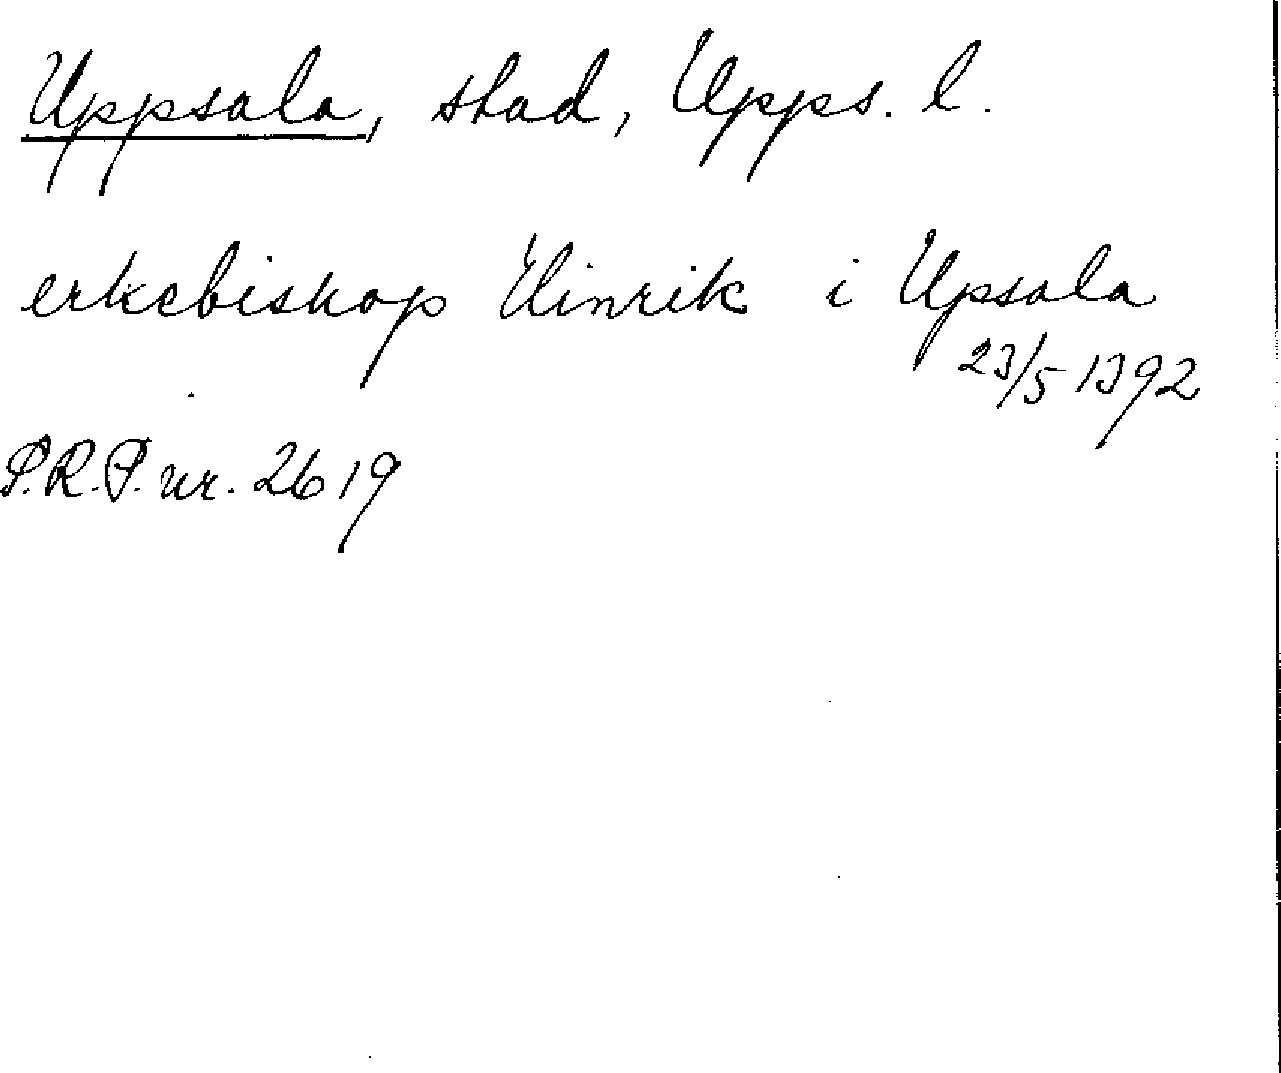 Uppsala, stad, Upps. l.
erkebiskop Hinrik i Upsala
23/5 1392
S.R.P. nr. 2619